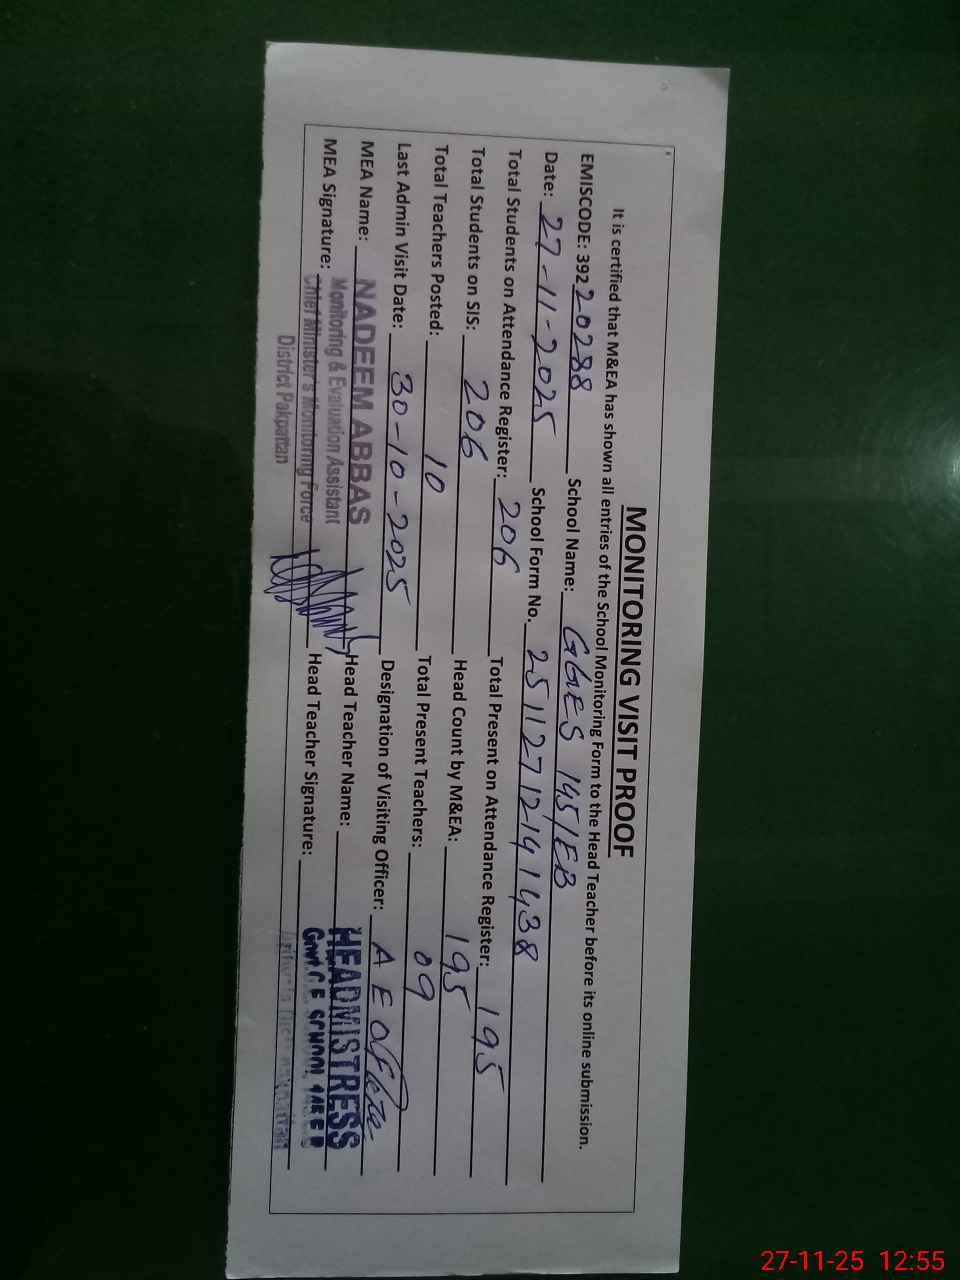 MONITORING VISIT PROOF
It is certified that M&EA has shown all entries of the School Monitoring Form to the Head Teacher before its online submission.
EMISCODE: 39220288 School Name: GGES 145/EB
Date: 27-11-2025 School Form No. 251127121914 38
Total Students on Attendance Register: 206 Total Present on Attendance Register: 195
Total Students on SIS: 206 Head Count by M&EA: 195
Total Teachers Posted: 10 Total Present Teachers: 09
Last Admin Visit Date: 30-10-2025 Designation of Visiting Officer: AEO
MEA Name: NADEEM ABBAS Head Teacher Name: HEADMISTRESS
Monitoring & Evaluation Assistant
MEA Signature: Chief Minister's Monitoring Force Head Teacher Signature: Govt. G E SCHOOL 145 E B
District Pakpattan
27-11-25 12:55